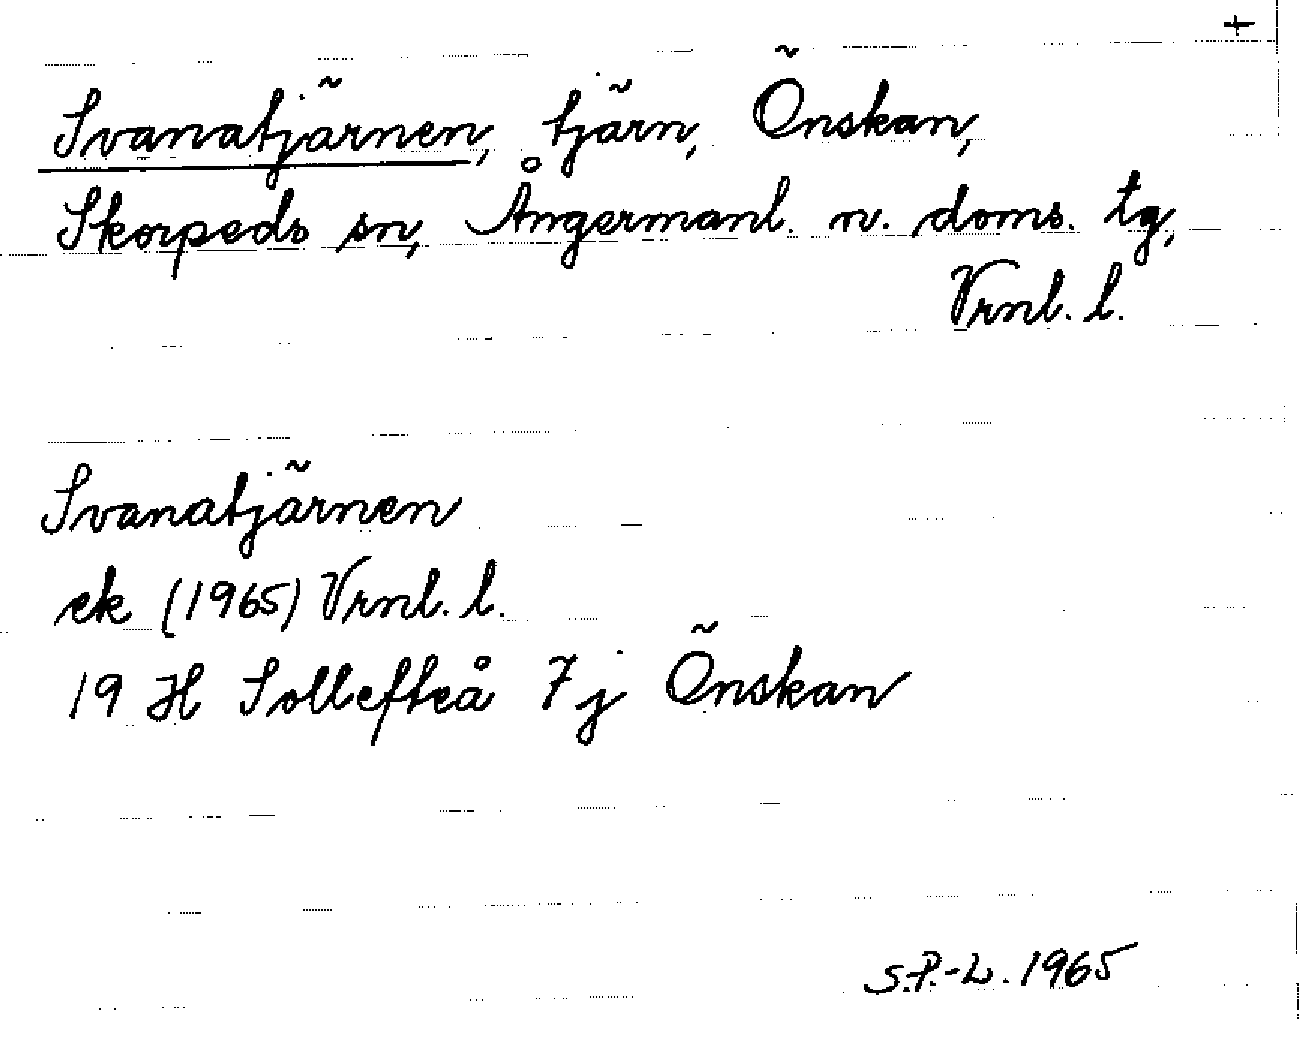 +
Svanatjärnen, tjärn, Önskan,
Skorpeds sn, Ångermanl. n. doms. tg,
Vrnl. l.
Svanatjärnen
ek (1965) Vrnl. l.
19 H Sollefteå 7j Önskan
S.P.-L. 1965